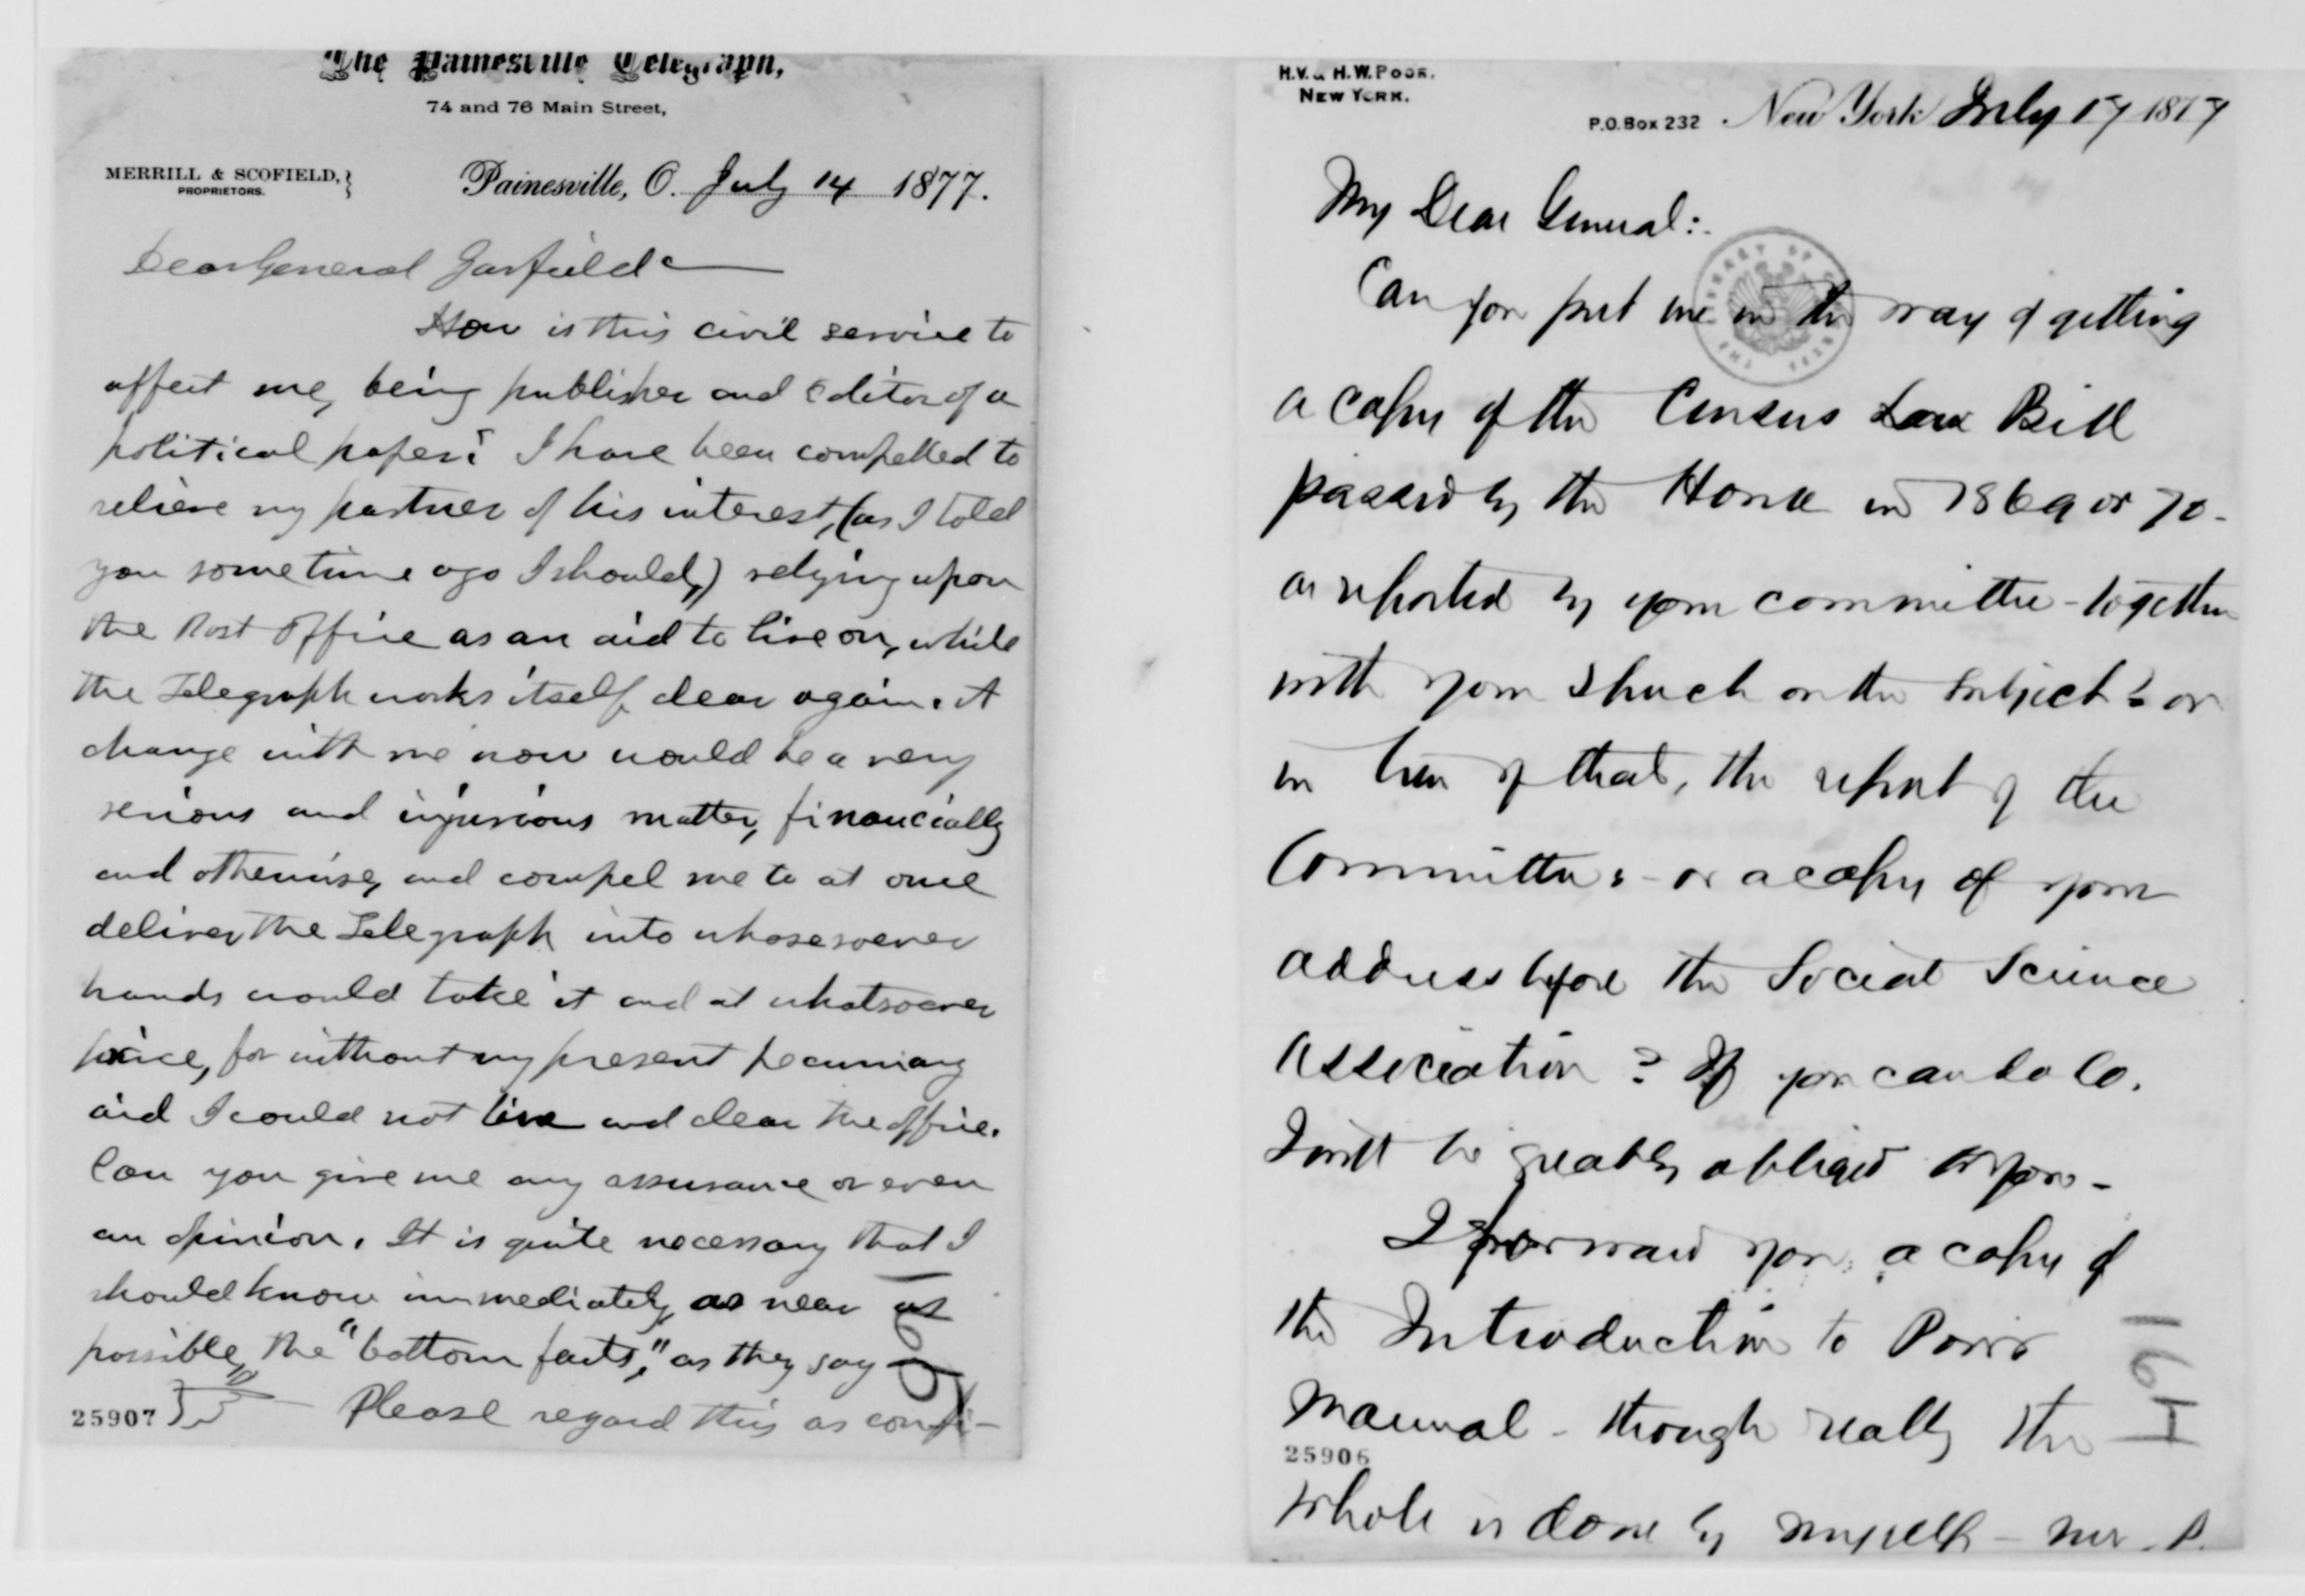 The Painesville Telegraph,
74 and 76 Main Street,
MERRILL & SCOFIELD,
PROPRIETORS.
Painesville, O. July 14 1877.
Dear General Garfield
How is this civil service to
affect me, being publisher and editor of a
political paper? I have been compelled to
relieve my partner of his interest, (as I told
you sometime ago I should,) relying upon
the Post Office as an aid to live on, while
the Telegraph works itself clear again. A
change with me now would be a very
serious and injurious matter, financially
and otherwise, and compel me to at once
deliver the Telegraph into whosesoever
hands would take it and at whatsoever
price, for without my present pecuniary
aid I could not live and clear the office.
Can you give me any assurance or even
an opinion. It is quite necessary that I
should know immediately, as near as
possible, the "bottom facts," as they say
25907
Please regard this as confi-
H.V. & H.W. POOR.
NEW YORK.
P.O. Box 232 New York July 17 1877
My Dear General:
Can you put me in the way of getting
a copy of the Census Law Bill
passed by the House in 1869 or 70-
as reported by your committee - together
with your speech on the subject? or
in lieu of that, the report of the
Committee - or a copy of your
address before the Social Science
Association? If you can do so.
I will be greatly obliged to you -
I forward you a copy of
the Introduction to Poor's
Manual - though really the
164
25906
whole is done by myself - Mr. P.